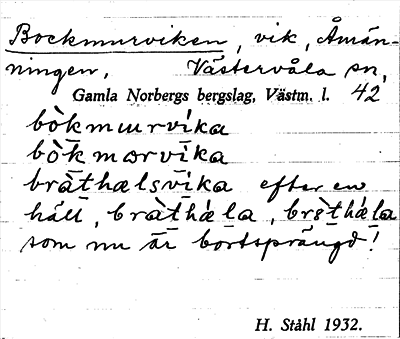 Bockmurviken, vik, Åmän-
ningen, Västervåla sn,
Gamla Norbergs bergslag, Västm. l. 42
bòkmurvíka
bòkmorvíka
bràthælsvíka efter en
häll, bràthǽla, brǝ̀thǽla
som nu är bortsprängd!
H. Ståhl 1932.